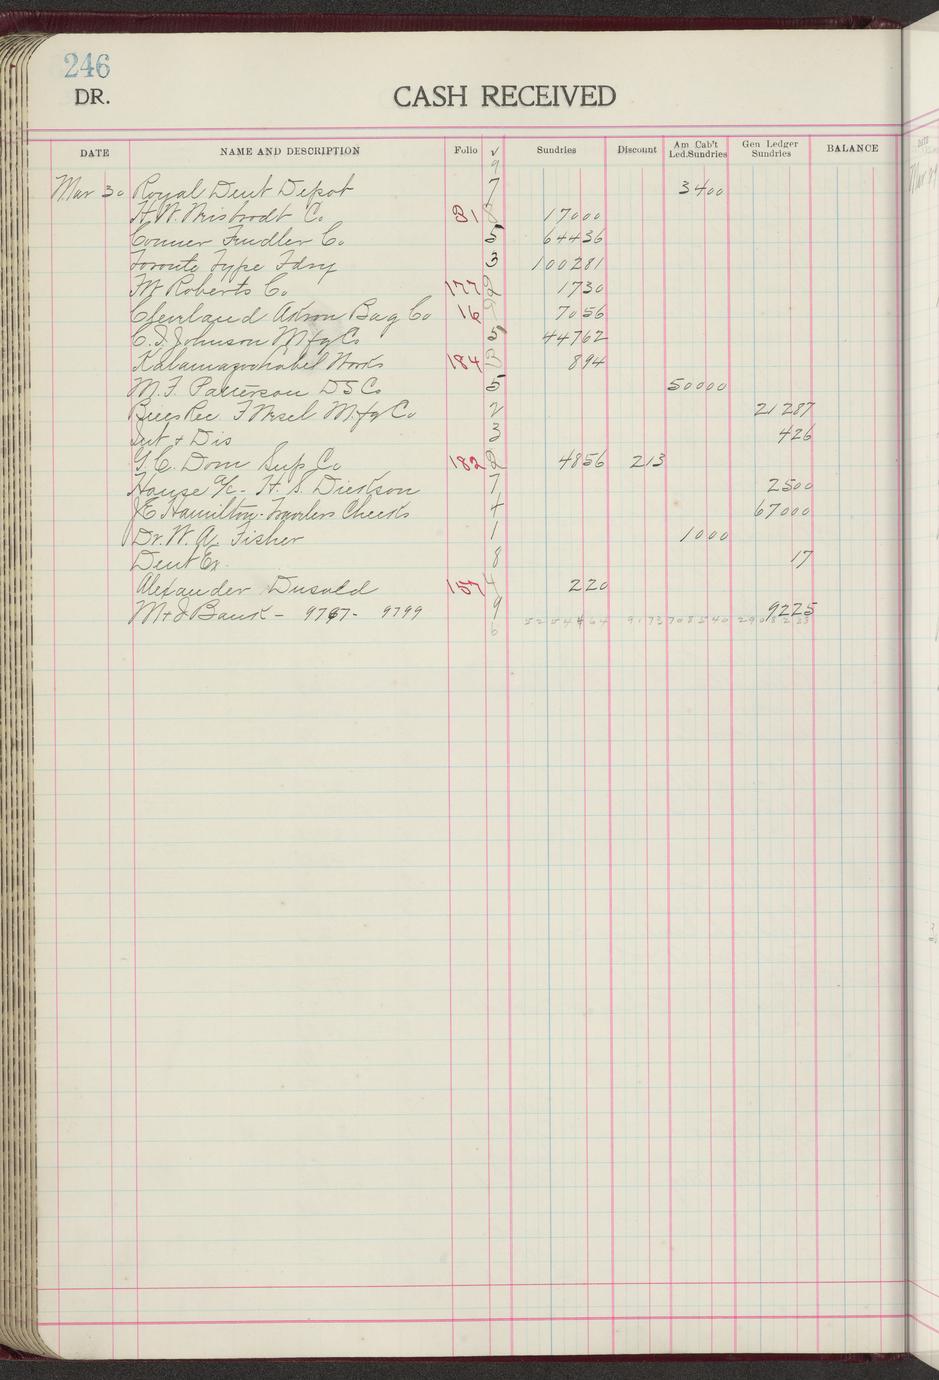 246
DR.
CASH RECEIVED
DATE NAME AND DESCRIPTION Folio √ Sundries Discount Am Cab't Led.Sundries Gen Ledger Sundries BALANCE
9
Mar 30 Royal Dent Depot 7 3400
H. W. Co 81 17000
Conner Fendler Co. 5 64436
Toronto Type Fdry 3 100281
Roberts Co. 177 2 1730
Cleveland Akron Bag Co 16 7056
C. S. Johnson Mfg Co 5 44762
Kalamazoo Label Works 184 894
M. F. Patterson D S Co 5 50000
Bills Rec. F Wesel Mfg Co 2 21287
Int + Dis 3 426
Dom Sup Co 182 2 4856 213
House a/c - H. S. Dickson 7 2500
J E Hamilton - Travelers Checks 4 67000
Dr. W. A. Fisher 1 1000
Dent Ex. 8 17
Alexander Dusold 157 4 220
M + I Bank - 9767 - 9799 9 9225
6 5254464 9173 708540